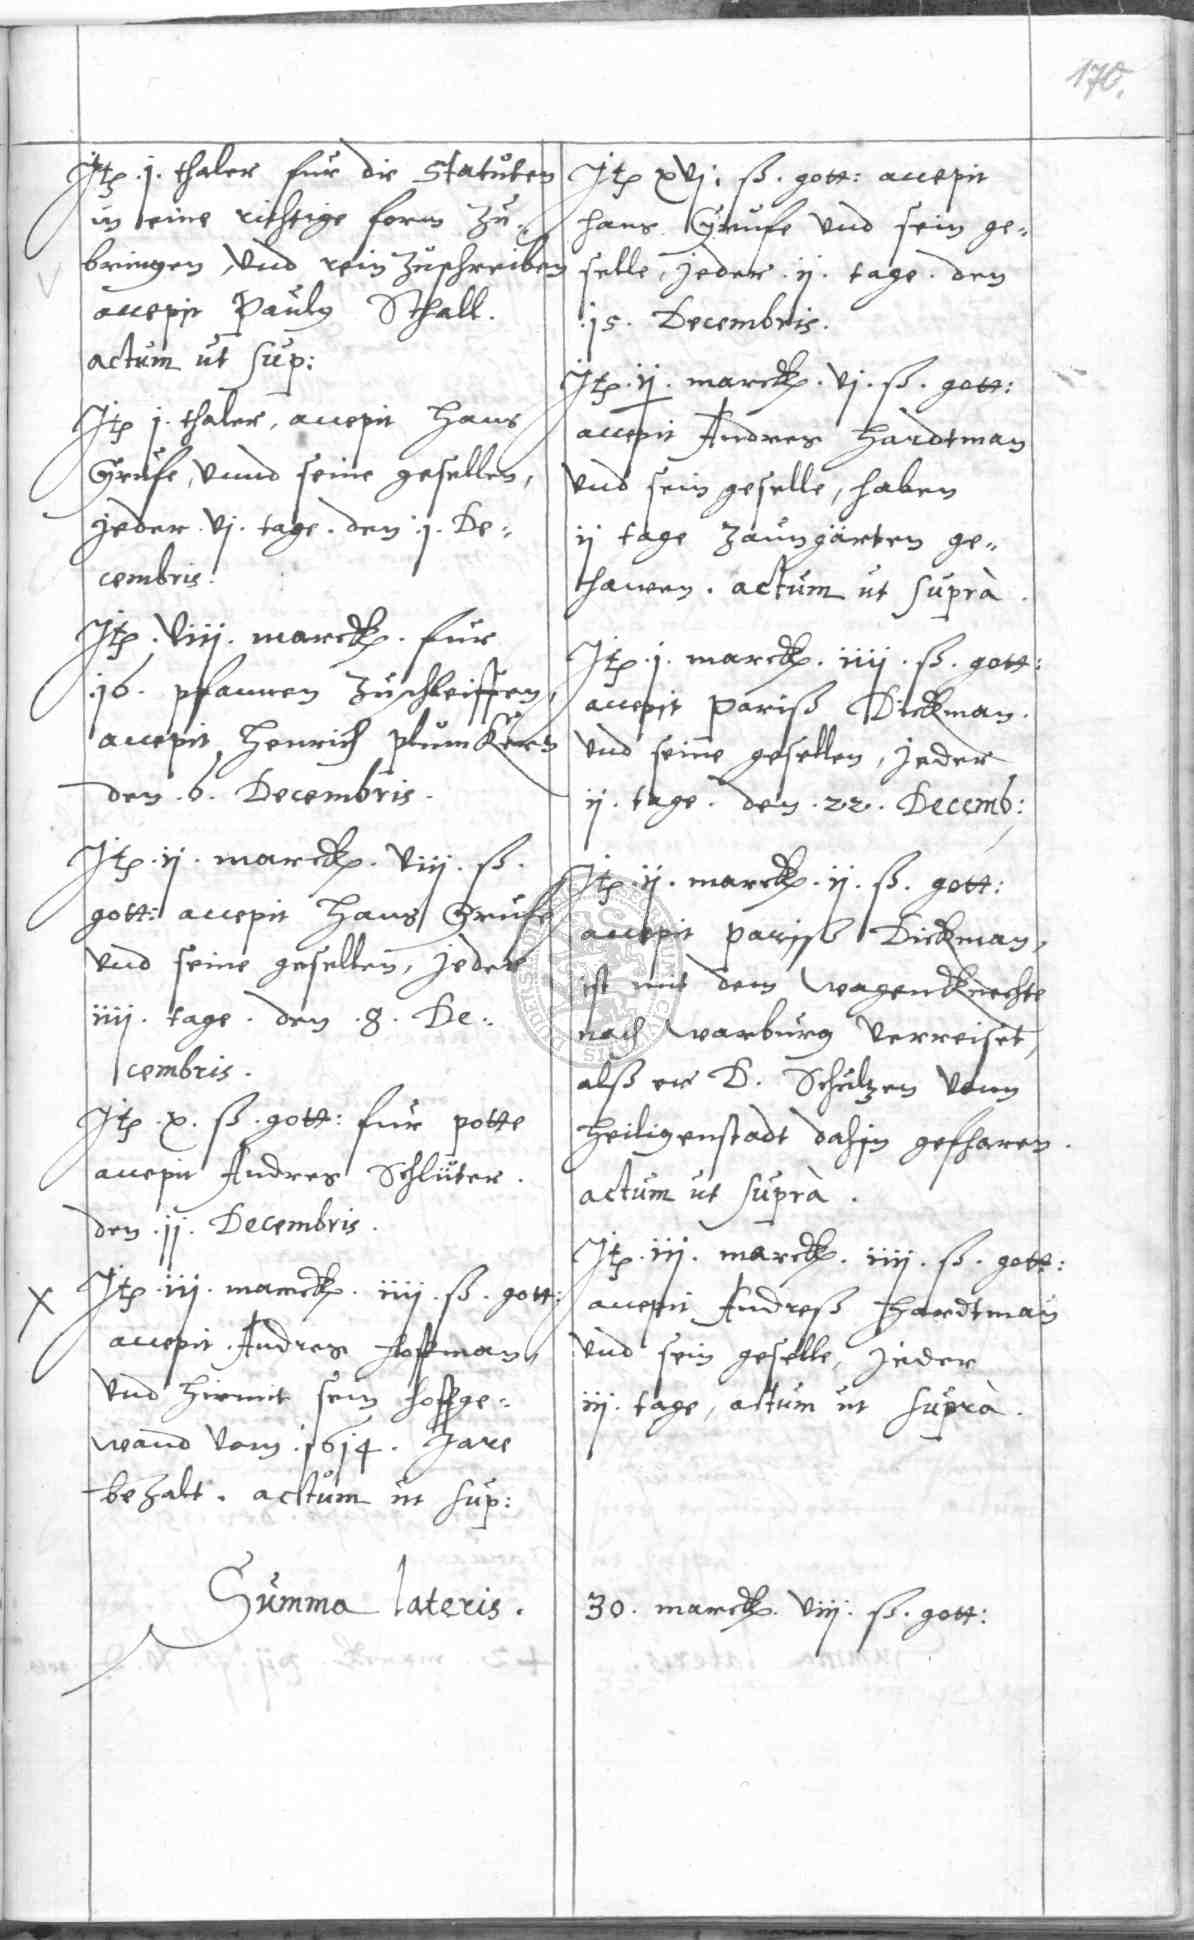 170.
Itp .j. thaler fur die Statuten
in eine richtige form zu„
bringen, vnd rein zuschreiben
accepit Paulg Schall.
actum ut sup:
Itp j. thaler, accepit Hans
Grufe, vnnd seine gesellen,
jeder .vj. tage. den .j. De„
cembris.
Itp .viij. marck. fur
.16. pfannen zuschleiffen,
accepit Henrich plumkers
den .6. Decembris.
Itp .ij. marck. viij. ß.
gott: accepit Hans Grufe
vnd seine gesellen, jeder
iiij. tage. den .8. De„
cembris.
Itp .x. ß. gott: fur potte
accepit Andres Schlüter.
den .jj. Decembris.
Itp .iij. marck. iiij. ß. gott:
accepit Andres Hoffman,
vnd hiemit sein hoffge„
wand vom .1614. Jare
bezalt. actum ut sup:
Summa lateris.
Itp xvj. ß. gott: accepit
Hans Grufe vnd sein ge„
selle, jeder .ij. tage. den
.15. Decembris.
Itp .ij. marck. vj. ß. gott:
accepit Andres Hardtman
vnd sein geselle, haben
ij tage zaungärten ge„
hawen. actum ut suprà.
Itp .j. marck. iiij. ß. gott:
accepit Pariß Dickman.
vnd seine gesellen, jeder
ij. tage. den .22. Decemb:
Itp .ij. marck. ij. ß. gott:
accepit Pariß Dickman,
ist mit dem wagenknechte
nach warburg verreiset,
alß er D. Schultzen vom
Heiligenstadt dahin gefharen.
actum ut suprà.
Itp .iij. marck. iiij. ß. gott:
accepit Andreß Hardtman
vnd sein geselle, jeder
iij. tage, actum ut suprà.
30. marck. viij. ß. gott: